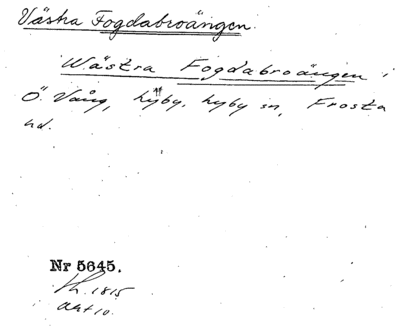 Västra Fogdabroängen.
Wästra Fogdabroängen i
Ö. Vång, Hyby, Hyby sn, Frosta
hd.
Nr 5645.
Lh. 1815
akt 10.